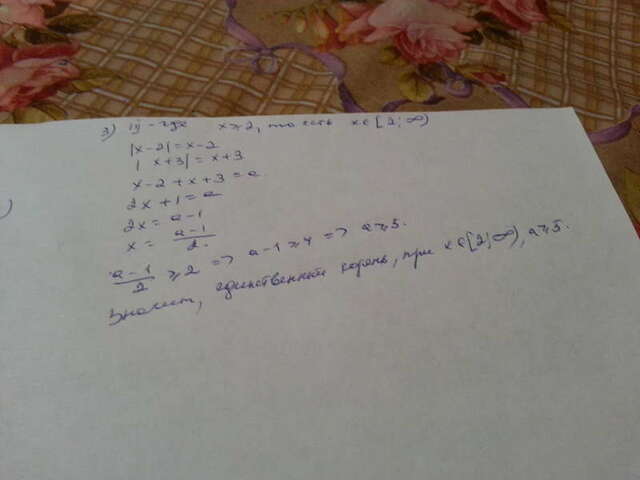 3) где x ⩾ 2, то есть x∈[2; ∞)
|x-2| = x-2
|x+3| = x+3
x-2+x+3 = a
2x+1 = a
2x = a-1
x = (a-1)/2
(a-1)/2 ⩾ 2 => a-1 ⩾ 4 => a ⩾ 5.
Значит, единственный корень, при x∈[2; ∞), a ⩾ 5.